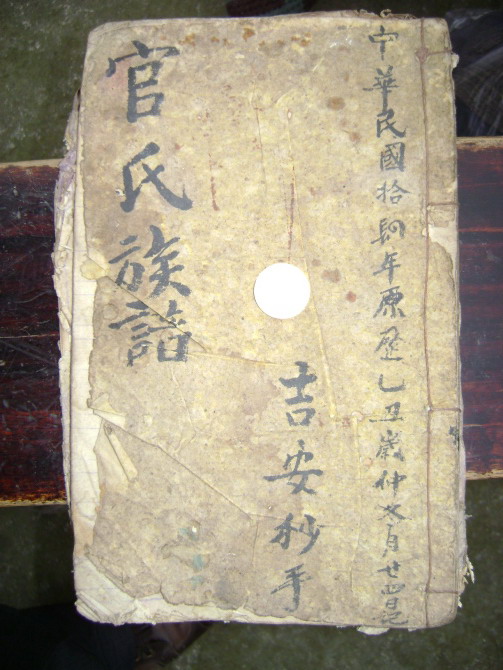 中華民國拾肆年原歷乙丑歲仲冬月廿四日
吉安抄手
官氏族譜